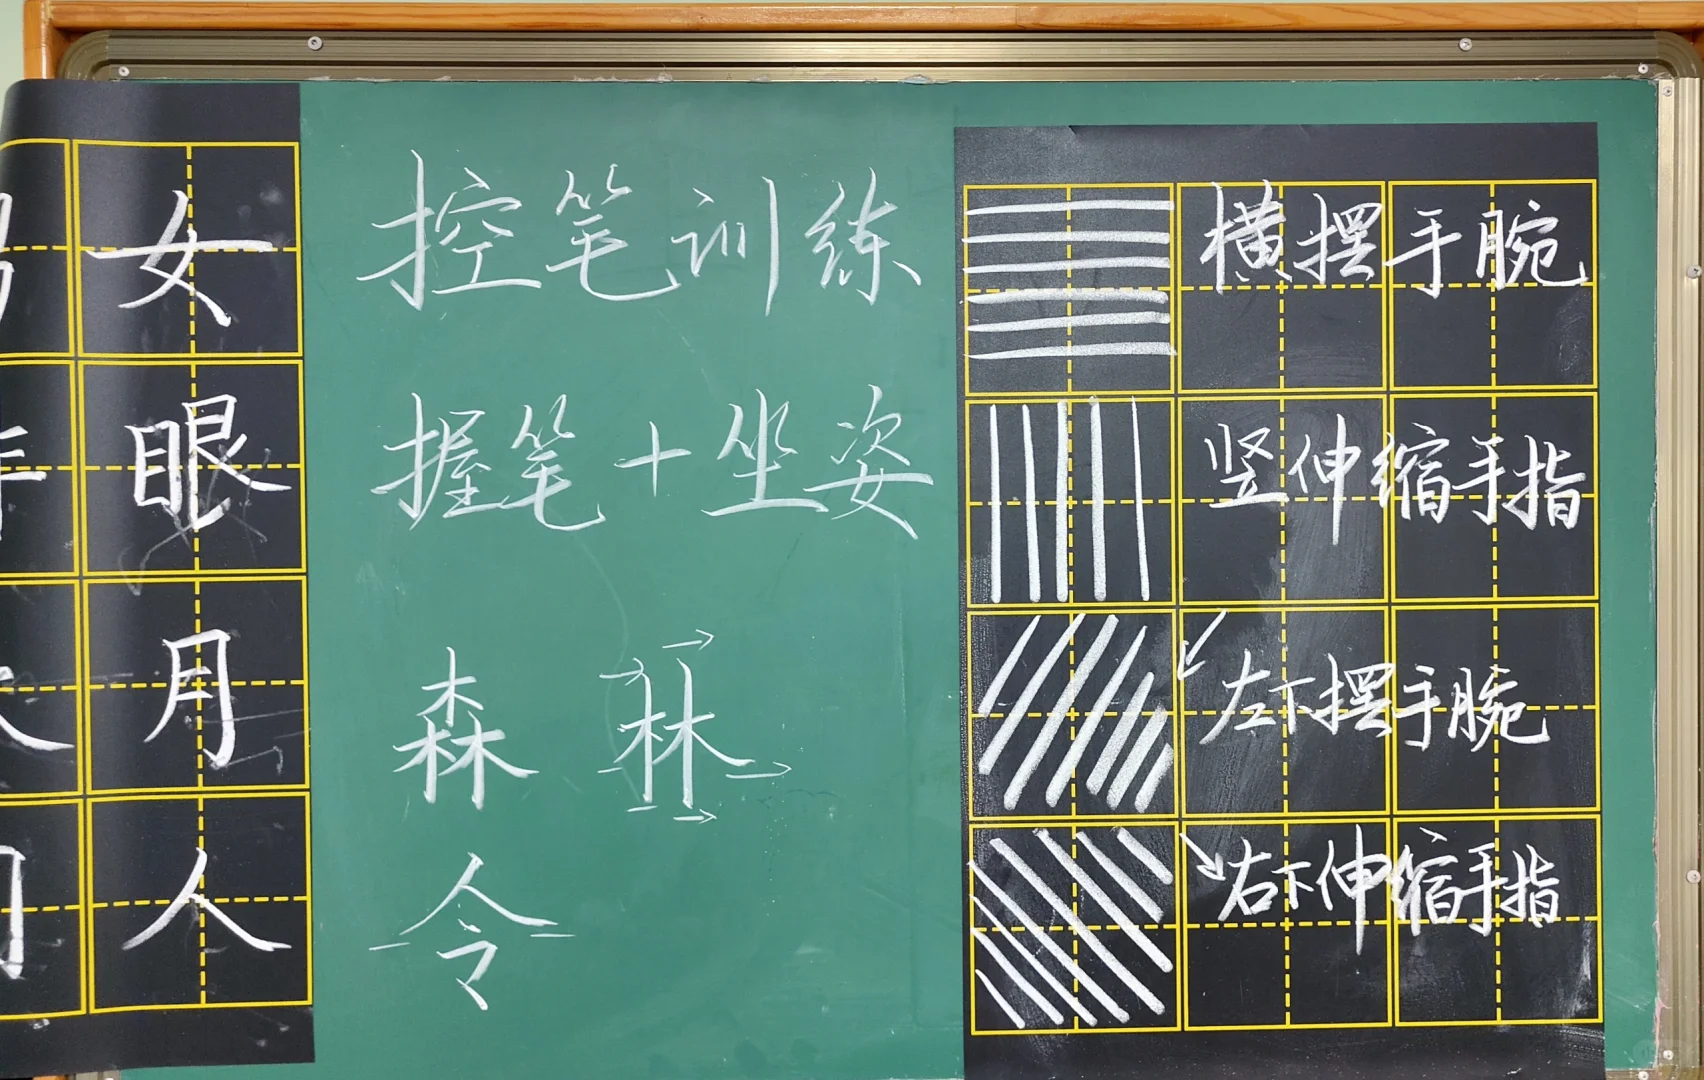 女
眼
月
人
控笔训练
握笔+坐姿
森 林
令
横摆手腕
竖伸缩手指
左下摆手腕
右下伸缩手指